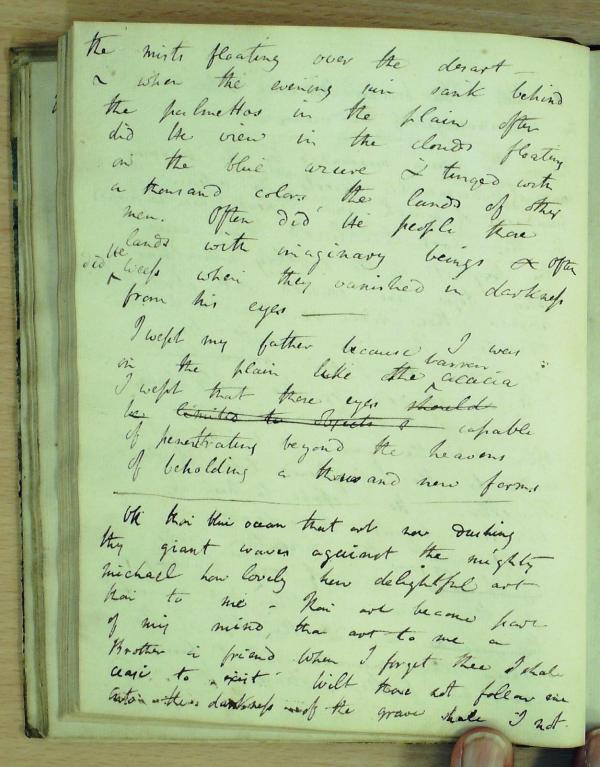 the mists floating over the desart –
& when the evening sun sank behind
the palmettos in the plain often
did He view in the clouds floating
in the blue azure & tinged with
a thousand colors, the lands of other
men. Often did He people these
lands with imaginary beings & often
did He weep when they vanished in darkness
from his eyes ——
I wept my father because I was
on the plain like the barren acacia
I wept that these eyes should
be limited to objects & capable
of penetrating beyond the heavens
of beholding a thousand new forms
Oh thou ocean that art now dashing
thy giant waves against the mighty
Michael how lovely how delightful art
thou to me – thou art become part
of my mind, thou art to me a
Brother a friend when I forget thee I shall
cease to exist. Wilt thou not follow me
into the darkness of the grave shall I not